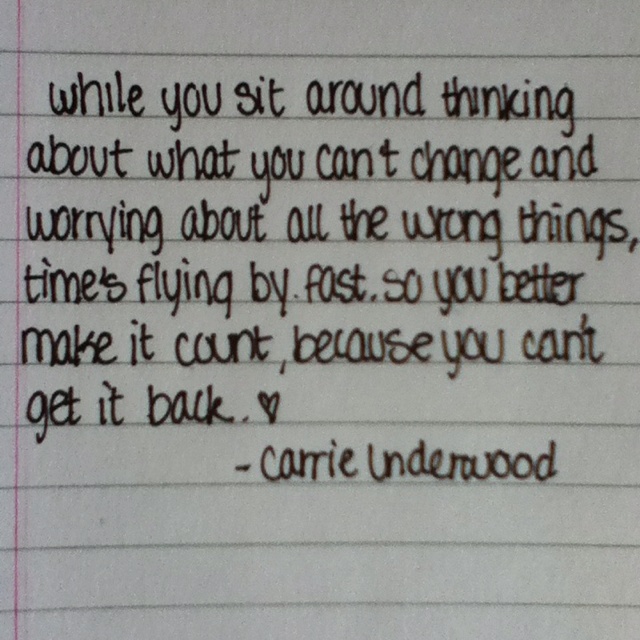 while you sit around thinking
about what you can't change and
worrying about all the wrong things,
time's flying by. fast. so you better
make it count, because you can't
get it back. ♥
- Carrie Underwood